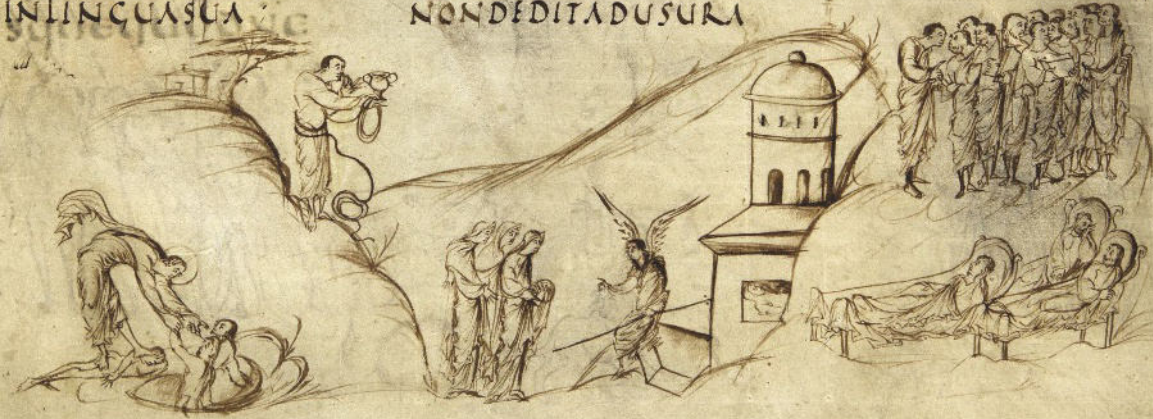 INLINGUASUA NONDEDITADUSURA